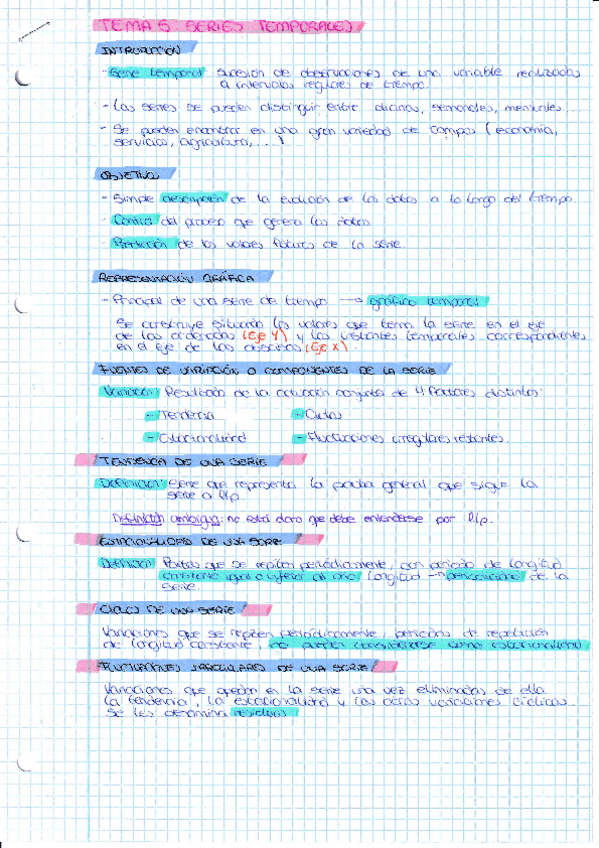 TEMA 5 SERIES TEMPORALES
INTRODUCCIÓN
- Serie temporal sucesión de observaciones de una variable realizadas
a intervalos regulares de tiempo.
- Las series se pueden distinguir entre diarias, semanales, mensuales...
- Se pueden encontrar en una gran variedad de campos (economía,
servicios, agricultura, ...)
OBJETIVO
- Simple descripción de la evolución de los datos a lo largo del tiempo.
- Control del proceso que genera los datos
- Predicción de los valores futuros de la serie.
REPRESENTACIÓN GRÁFICA
- Principal de una serie de tiempo → gráfico temporal
Se construye situando los valores que toma la serie en el eje
de las ordenadas (Eje Y) y los instantes temporales correspondientes
en el eje de las abscisas (Eje X).
FUENTES DE VARIACIÓN O COMPONENTES DE LA SERIE
Variación: Resultado de la actuación conjunta de 4 factores distintos:
- Tendencia - Ciclos
- Estacionalidad - Fluctuaciones irregulares restantes.
TENDENCIA DE UNA SERIE
Definición: Serie que representa la pauta general que sigue la
serie a l/p
Definición ambigua: no está claro que debe entenderse por l/p.
ESTACIONALIDAD DE UNA SERIE
Definición: Pautas que se repiten periódicamente, con periodo de longitud
constante igual o inferior al año. Longitud → periodicidad de la
serie.
CICLOS DE UNA SERIE
Variaciones que se repiten periódicamente, periodos de repetición
de longitud constante, no pueden considerarse como estacionalidad
FLUCTUACIONES IRREGULARES DE UNA SERIE
Variaciones que quedan en la serie una vez eliminadas de ella
la tendencia, la estacionalidad y las otras variaciones cíclicas.
Se les denomina residuos